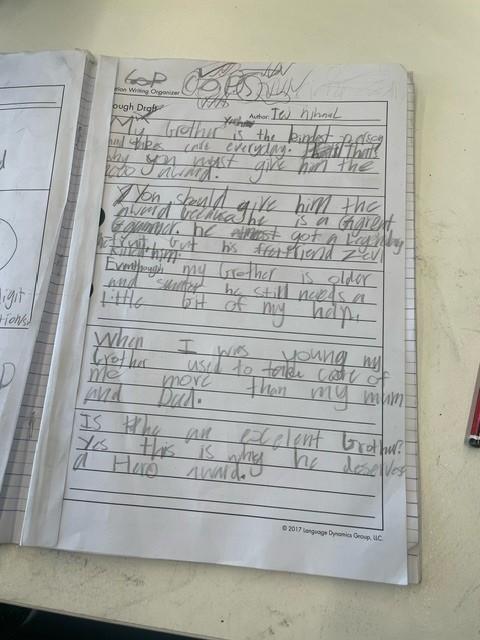 GOP
tion Writing Organizer
OOPS
ough Draft
Author:
My brother is the kindest person
and takes care everyday. That's
why you must give him the
award.
You should give him the
award because he is a Great
Gammer. he almost got a Legendary
fruit but his friend Zevi
killed him.
Eventhough my brother is older
and smarter he still needs a
little bit of my help.
When I was young my
brother used to take care of
me more than my mum
and Dad.
Is he an excelent brother?
Yes this is why he deserves
a Hero award.
© 2017 Language Dynamics Group, LLC.
igit
tions